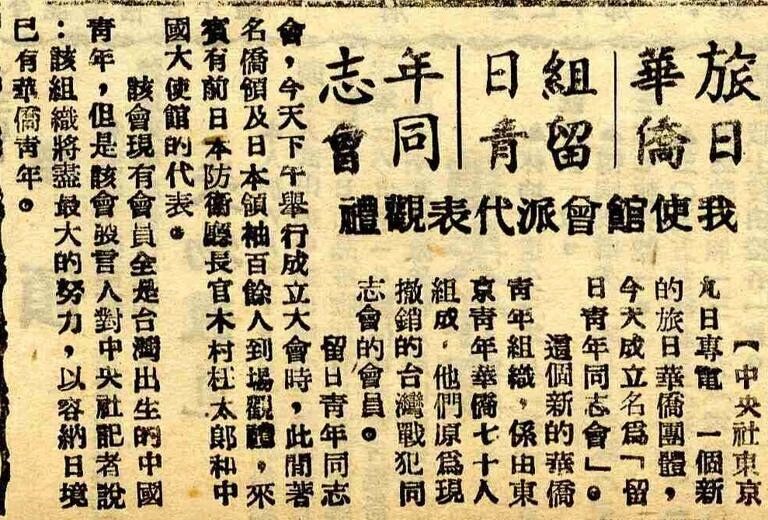 旅日
華僑
組留
日青
年同
志會
我使館曾派代表觀禮
【中央社東京
九日專電】一個新
的旅日華僑團體,
今天成立名爲「留
日青年同志會」。
這個新的華僑
青年組織,係由東
京青年華僑七十人
組成,他們原爲現
撤銷的台灣戰犯同
志會的會員。
留日青年同志
會,今天下午舉行成立大會時,此間著
名僑領及日本領袖百餘人到場觀禮,來
賓有前日本防衛廳長官木村杜太郎和中
國大使館的代表。
該會現有會員全是台灣出生的中國
青年,但是該會發言人對中央社記者說
:該組織將盡最大的努力,以容納日境
已有華僑青年。